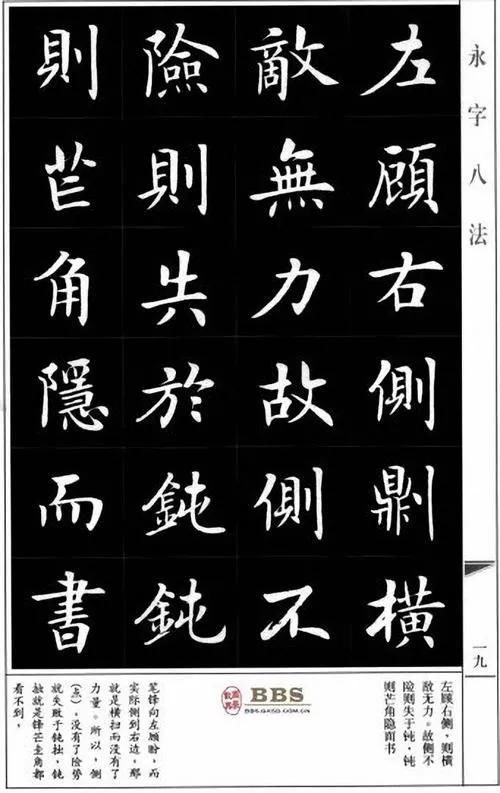 永字八法
一九
左顧右側則橫
敵無力故側不
險則失於鈍鈍
則芒角隱而書
左顾右侧，则横
敌无力。故侧不
险则失于钝，钝
则芒角隐而书
BBS
笔锋向左顾盼，而
实际侧到右边，那
就是横扫而没有了
力量。所以，侧
（点），没有了险势
就失败于钝拙，钝
拙就是锋芒圭角都
看不到，